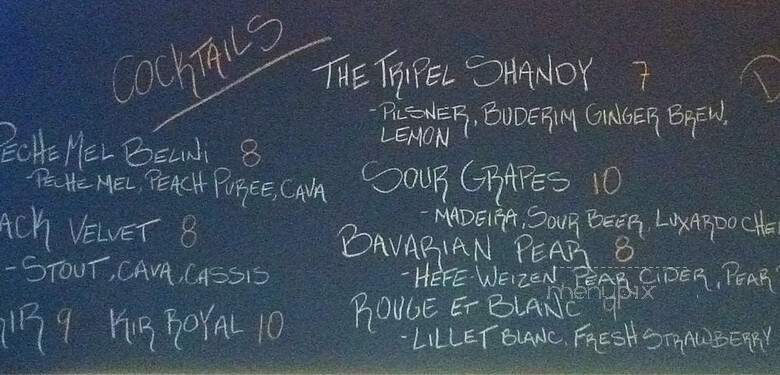 COCKTAILS
PECHE MEL BELINI 8
-PECHE MEL, PEACH PUREE, CAVA
ACK VELVET 8
-STOUT, CAVA, CASSIS
KIR 9 KIR ROYAL 10
THE TRIPEL SHANDY 7
-PILSNER, BUDERIM GINGER BREW,
LEMON
SOUR GRAPES 10
-MADEIRA, SOUR BEER, LUXARDO CHE
BAVARIAN PEAR 8
-HEFE-WEIZEN PEAR CIDER, PEAR
ROUGE ET BLANC 9
-LILLET BLANC, FRESH STRAWBERRY
menupix